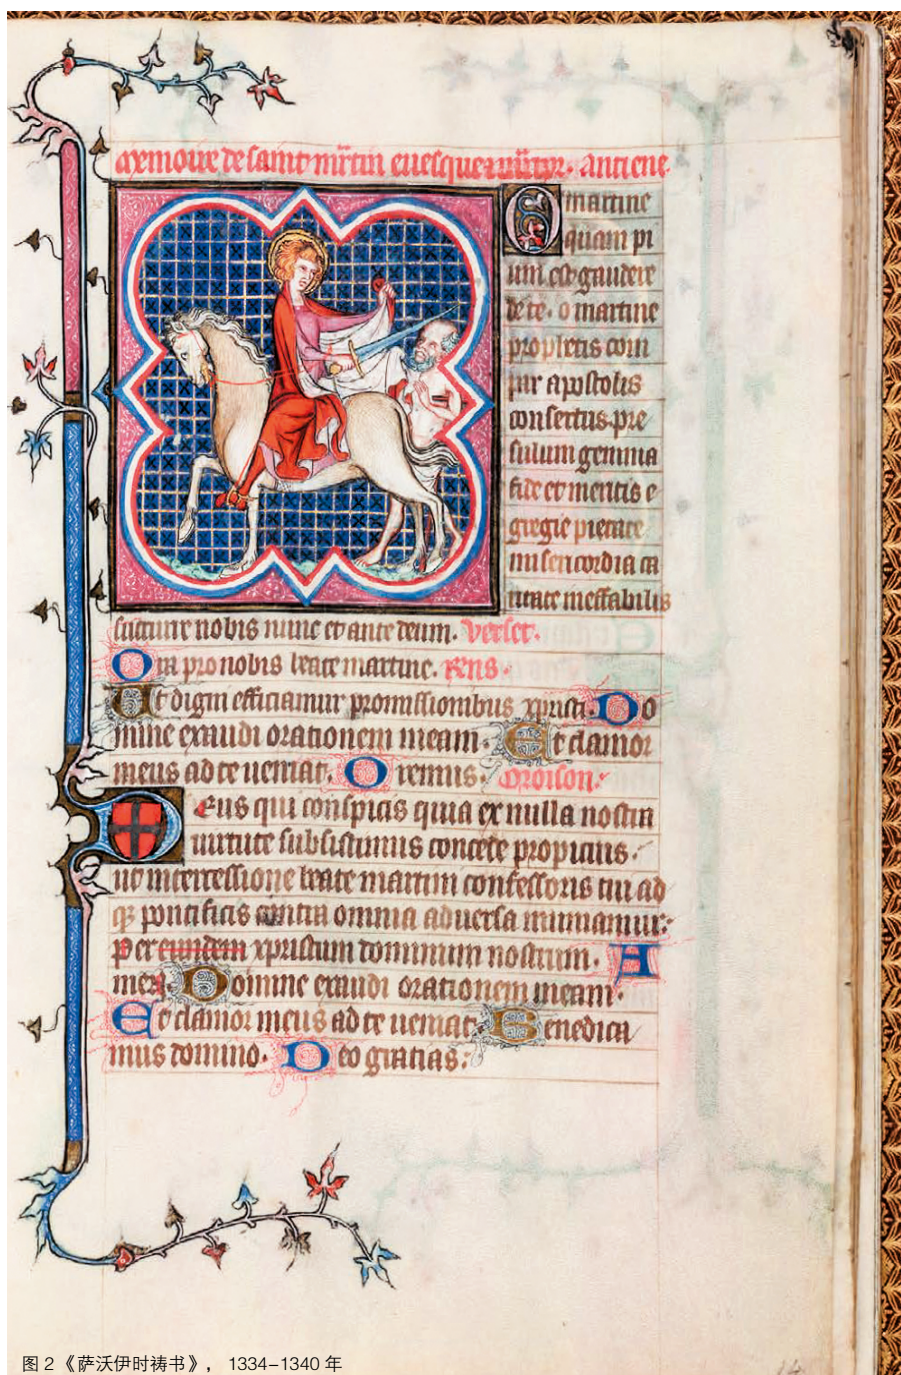 memoire de saint mr̄tin euesque
antiene
O martine
quam pi
um est gaudere
de te. o martine
prophetis com
par apostolis
consertus. pre
sulum gemma
fide et meritis e
gregie pietate
misericordia ca
ritate ineffabilis
succurre nobis nunc et ante deum. Verset.
Ora pro nobis beate martine. Rens.
Ut digni efficiamur promissionibus xpristi. Do
mine exaudi orationem meam. Et clamor
meus ad te ueniat. Oremus. Oroison.
Deus qui conspicis quia ex nulla nostra
uirtute subsistimus concede propicius.
ut intercessione beati martini confessoris tui ad
qz pontificis contra omnia aduersa muniamur:
Per eundem xpristum dominum nostrum. A
men. Domine exaudi orationem meam.
Et clamor meus ad te ueniat. Benedica
mus domino. Deo gratias:
图 2《萨沃伊时祷书》， 1334–1340 年